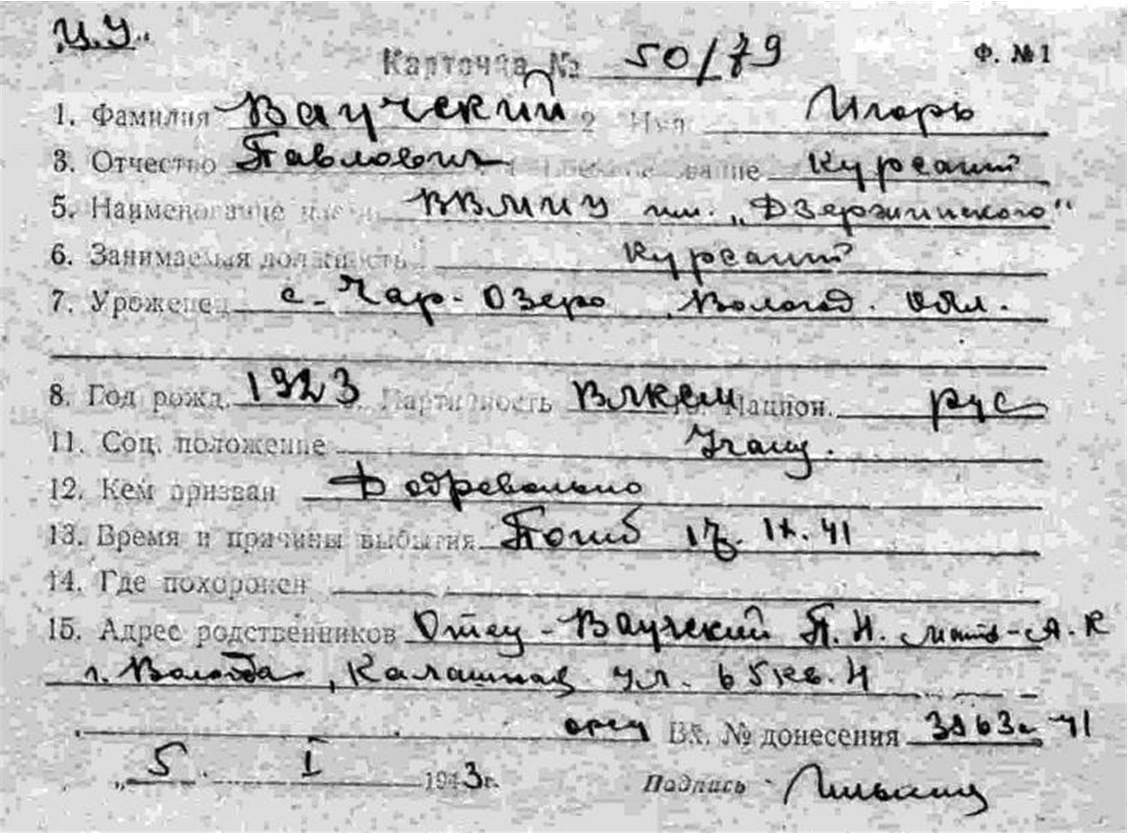 „Ц.У„
Карточка № 50/79 Ф. №1
1. Фамилия Ваучский 2 Имя Игорь
3. Отчество Павлович звание Курсант
5. Наименование части ВВМИУ им. „Дзержинского“
6. Занимаемая должность Курсант
7. Уроженец с. Чар-Озеро, Вологод. обл.
8. Год рожд. 1923 Партийность ВЛКСМ 10. Национ. рус
11. Соц. положение Учащ.
12. Кем призван Добровольно
13. Время и причины выбытия Погиб 17. IX. 41
14. Где похоронен
15. Адрес родственников Отец - Ваучский П. Н. мать - А. К
г. Вологда, Калашная ул. 65 кв. 4
Вх. № донесения 41
„ 5. I 1943г. Подпись